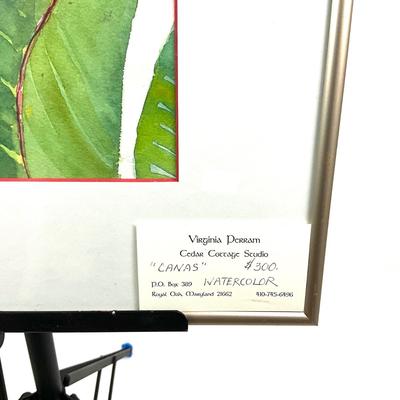 Virginia Perram
Cedar Cottage Studio
"CANAS" $300.
P.O. Box 389 WATERCOLOR
Royal Oak, Maryland 21662 410-745-6496